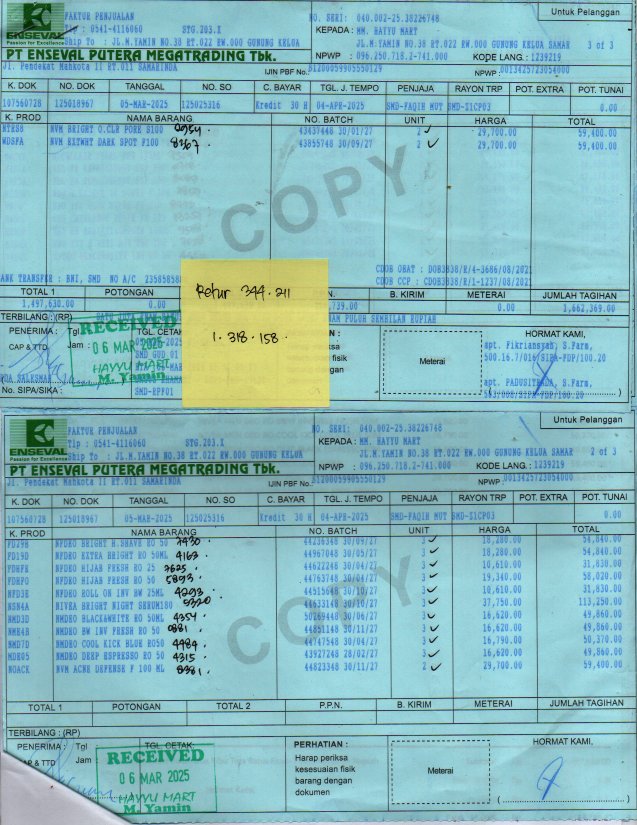 ENSEVAL
Passion for Excellence
FAKTUR PENJUALAN
: 0541-4116060 STG.203.I
Ship To : JL.M.YAMIN NO.38 RT.022 RW.000 GUNUNG KELUA
PT ENSEVAL PUTERA MEGATRADING Tbk.
Jl. Pendekat Mahkota II RT.011 SAMARINDA
IJIN PBF No.: 81200059905550129
Untuk Pelanggan
NO. SERI: 040.002-25.38226748
KEPADA : MM. HAYYU MART
JL.M.YAMIN NO.38 RT.022 RW.000 GUNUNG KELUA SAMAR 3 of 3
NPWP : 096.250.718.2-741.000 KODE LANG. : 1239219
NPWP : 0013425723054000
K. DOK NO. DOK TANGGAL NO. SO C. BAYAR TGL. J. TEMPO PENJAJA RAYON TRP POT. EXTRA POT. TUNAI
107560728 125018967 05-MAR-2025 125025316 Kredit 30 H 04-APR-2025 SMD-FAQIH MUT SMD-Z1CP03 0.00
K. PROD NAMA BARANG NO. BATCH UNIT HARGA TOTAL
NVM BRIGHT O.CLR PORE S100 43437448 30/01/27 2 29,700.00 59,400.00
WDSPA NVM EXTWHT DARK SPOT F100 8367 43855748 30/09/27 2 29,700.00 59,400.00
COPY
CDOB OBAT : DOB3838/R/4-3686/08/2021
CDOB CCP : CDOB3838/R/1-1237/08/2021
ANK TRANSFER : BNI, SMD NO A/C
TOTAL 1 POTONGAN B. KIRIM METERAI JUMLAH TAGIHAN
1,497,630.00 0.00 ,739.00 0.00 0.00 1,662,369.00
Retur 344.211
1.318.158
TERBILANG : (RP) PULUH SEMBILAN RUPIAH
PENERIMA : Tgl TGL. CETAK
CAP & TTD Jam :
RECEIVED
06 MAR 2025
HAYYU MART
M. Yamin
No. SIPA/SIKA :
SMD-EPF01
Meterai
HORMAT KAMI,
apt. Fikriansyah, S.Farm,
500.16.7/016/SIPA-FDP/100.20
apt. PADUSITHADA, S.Farm,
ENSEVAL
Passion for Excellence
FAKTUR PENJUALAN
Tlp : 0541-4116060 STG.203.I
Ship To : JL.M.YAMIN NO.38 RT.022 RW.000 GUNUNG KELUA
PT ENSEVAL PUTERA MEGATRADING Tbk.
Jl. Pendekat Mahkota II RT.011 SAMARINDA
IJIN PBF No.: 81200059905550129
Untuk Pelanggan
NO. SERI: 040.002-25.38226748
KEPADA : MM. HAYYU MART
JL.M.YAMIN NO.38 RT.022 RW.000 GUNUNG KELUA SAMAR 2 of 3
NPWP : 096.250.718.2-741.000 KODE LANG. : 1239219
NPWP : 0013425723054000
K. DOK NO. DOK TANGGAL NO. SO C. BAYAR TGL. J. TEMPO PENJAJA RAYON TRP POT. EXTRA POT. TUNAI
107560728 125018967 05-MAR-2025 125025316 Kredit 30 H 04-APR-2025 SMD-FAQIH MUT SMD-Z1CP03 0.00
K. PROD NAMA BARANG NO. BATCH UNIT HARGA TOTAL
FD79B NFDEO BRIGHT H.SHAVE RO 50 7430 44236348 30/09/27 3 18,280.00 54,840.00
FD19D NFDEO EXTRA BRIGHT RO 50ML 4163 44967048 30/05/27 3 18,280.00 54,840.00
FDHF8 NFDEO HIJAB FRESH RO 25 7625 44622248 30/04/27 3 10,610.00 31,830.00
FDHF9 NFDEO HIJAB FRESH RO 50 5893 44763748 30/04/27 3 19,340.00 58,020.00
NFD3E NFDEO ROLL ON INV BW 25ML 4293 44515648 30/10/27 3 10,610.00 31,830.00
NSN4A NIVEA BRIGHT NIGHT SERUM180 5320 44633148 30/10/27 3 37,750.00 113,250.00
NMD3D NMDEO BLACK&WHITE RO 50ML 4354 50269448 30/06/27 3 16,620.00 49,860.00
NME4B NMDEO BW INV FRESH RO 50 0881 44851148 30/11/27 3 16,620.00 49,860.00
NMD7D NMDEO COOL KICK BLUE RO50 4484 44747548 30/04/27 3 16,790.00 50,370.00
MDE05 NMDEO DEEP ESPRESSO RO 50 4315 43927248 28/02/27 3 16,620.00 49,860.00
NOACK NVM ACNE DEFENSE F 100 ML 8381 44823348 30/11/27 2 29,700.00 59,400.00
COPY
TOTAL 1 POTONGAN TOTAL 2 P.P.N. B. KIRIM METERAI JUMLAH TAGIHAN
TERBILANG : (RP)
PENERIMA : Tgl TGL. CETAK:
CAP & TTD Jam
RECEIVED
06 MAR 2025
HAYYU MART
M. Yamin
PERHATIAN :
Harap periksa
kesesuaian fisik
barang dengan
dokumen
Meterai
HORMAT KAMI,